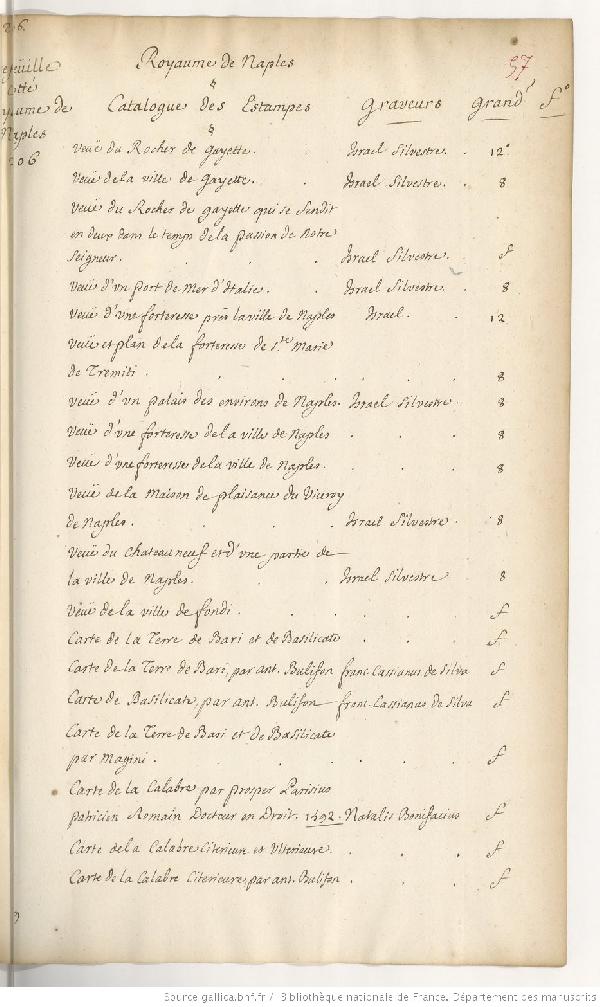 206.
Royaume de Naples
57
efeüille
Cotté
yaume de
Naples
206
Catalogue des Estampes Graveurs Grand.r f.o
Veüe du Rocher de gayette. Israel Silvestre. 12.o
Veüe de la ville de Gayette. Israel Silvestre. 8
Veüe du Rocher de gayette qui se fendit
en deux dans le temps de la passion de Notre
Seigneur. Israel Silvestre. f
Veüe d'un port de Mer d'Italie. Israel Silvestre. 8
Veüe d'une forteresse près la ville de Naples Israel. 12
Veüe et plan de la forteresse de S.te Marie
de Tremiti. 8
Veüe d'un palais des environs de Naples. Israel Silvestre. 8
Veüe d'une forteresse de la ville de Naples 8
Veüe d'une forteresse de la ville de Naples. 8
Veüe de la Maison de plaisance du Viceroy
de Naples. Israel Silvestre. 8
Veüe du Chateau neuf et d'une partie de
la ville de Naples. Israel Silvestre 8
Veüe de la ville de fondi. f
Carte de la Terre de Bari et de Basilicate f
Carte de la Terre de Bari, par ant. Bulifon franc. Cassianus de Silva f
Carte de Basilicate, par ant. Bulifon franc. Cassianus de Silva f
Carte de la Terre de Bari et de Basilicate
par Magini. f
Carte de la Calabre par prosper Parisius
patricien Romain Docteur en Droit. 1592. Natalis Bonifacius f
Carte de la Calabre Citerieure et Ulterieure. f
Carte de la Calabre Citerieure, par ant. Bulifon. f
Source gallica.bnf.fr / Bibliothèque nationale de France. Département des manuscrits